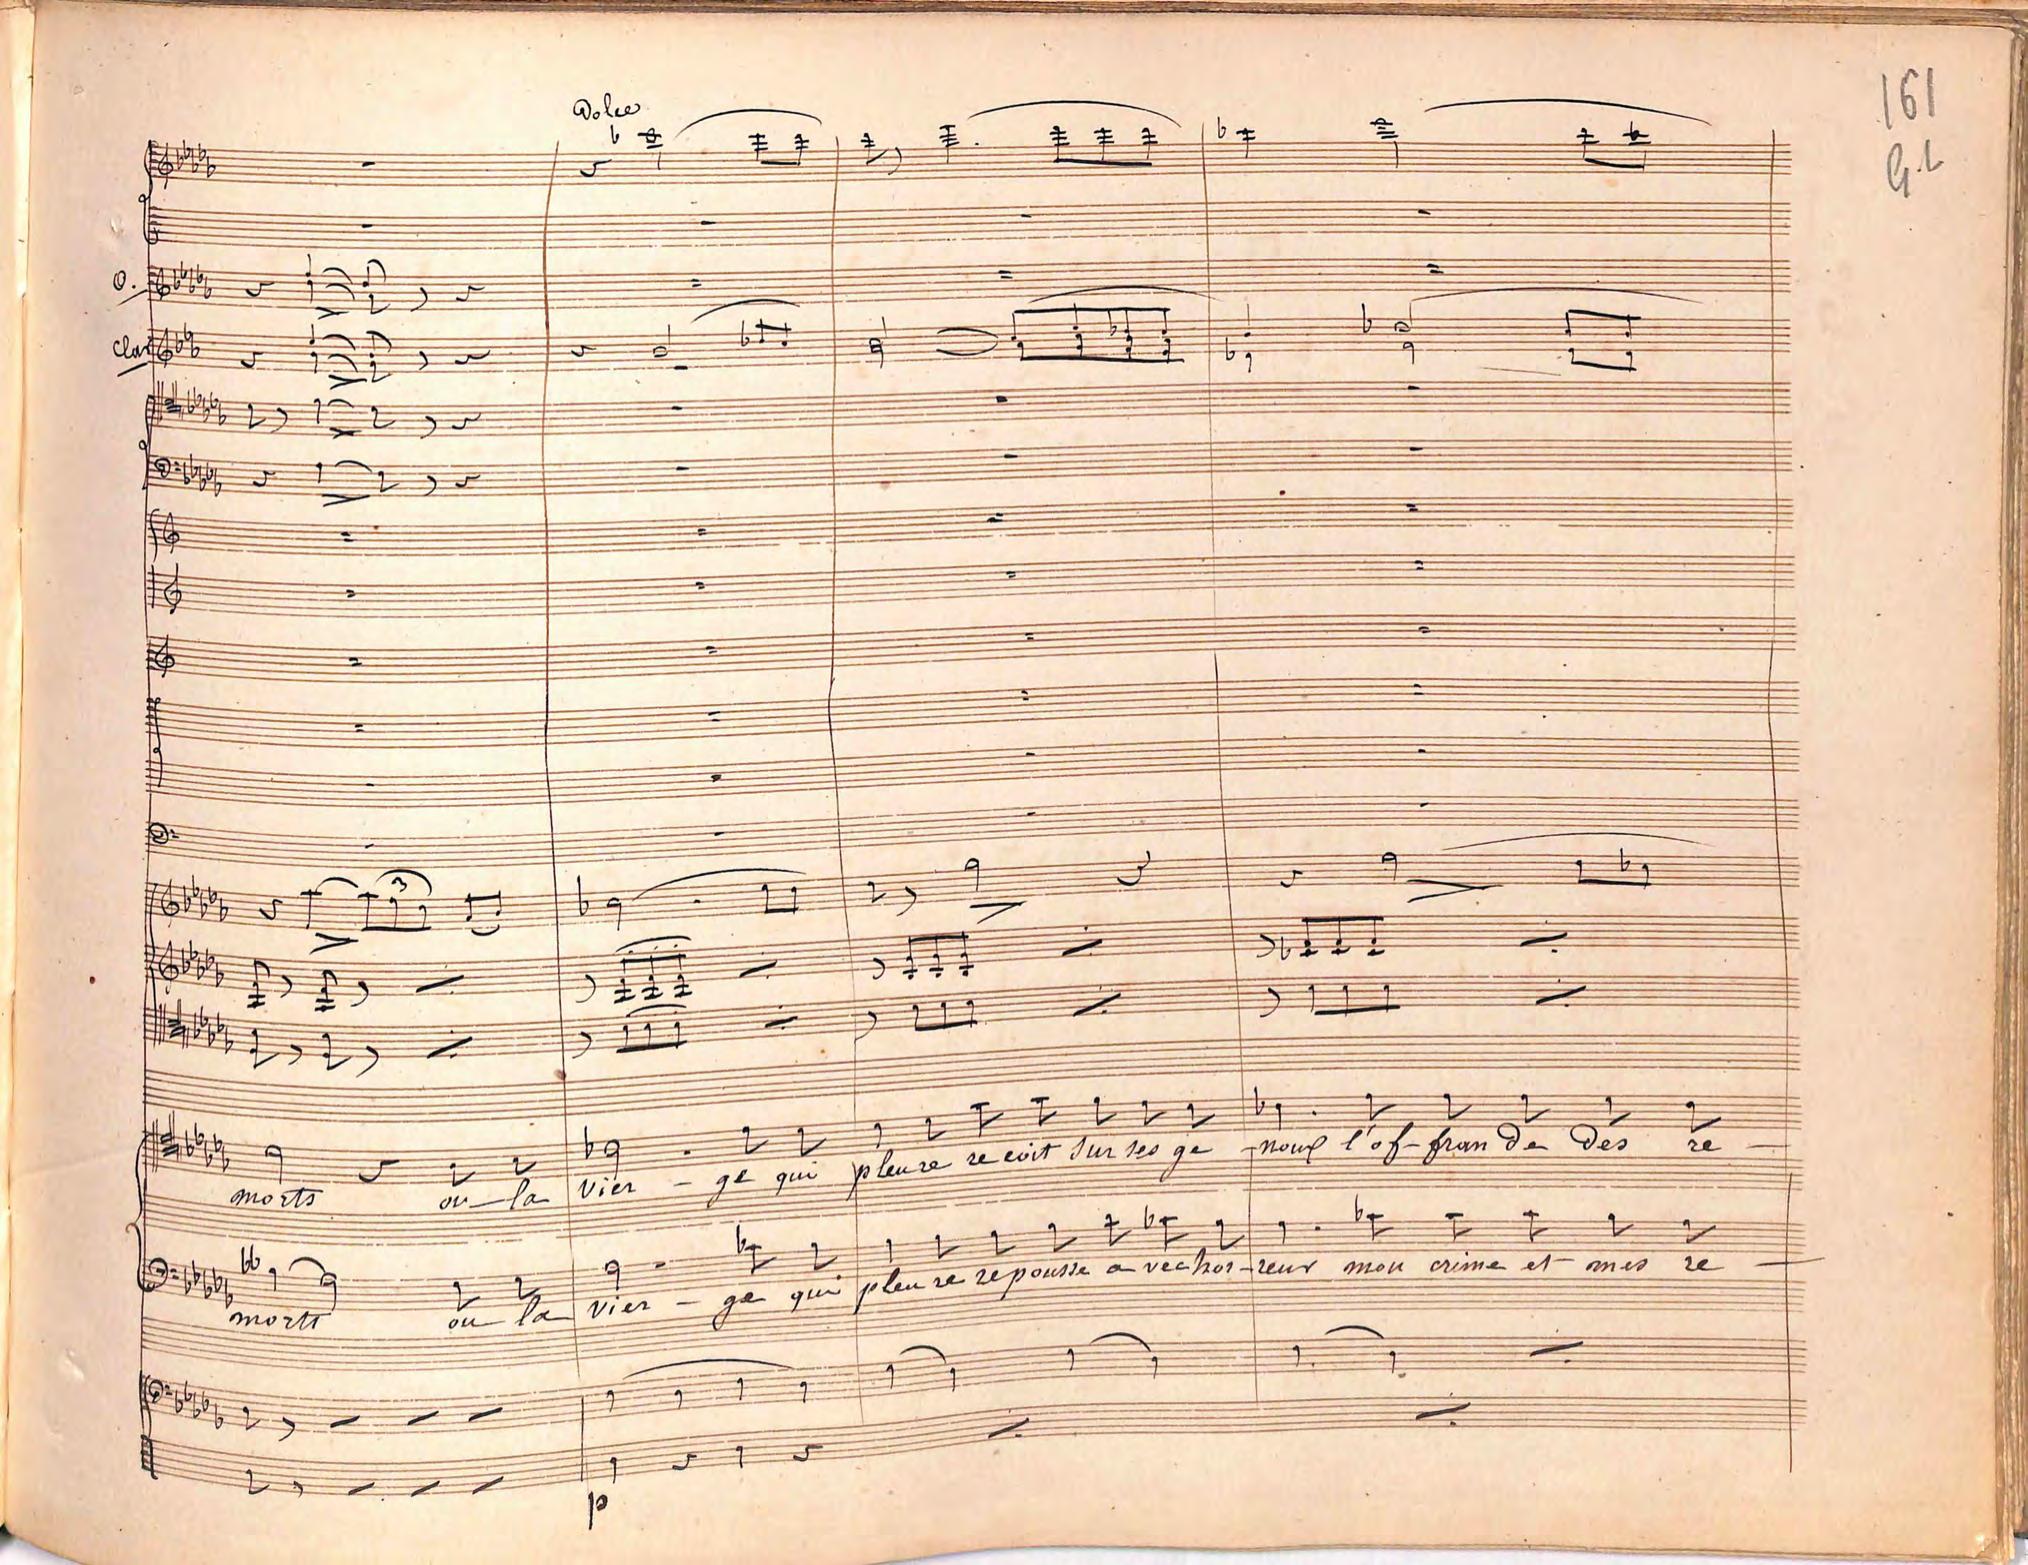 161
G.L
Dolce
O.
Clar
3
morts ou la vier - ge qui pleure recoit sur ses ge - noux l'of-fran de des re -
morts ou la vier - ge qui pleure repousse a vec hor-reur mon crime et mes re -
p